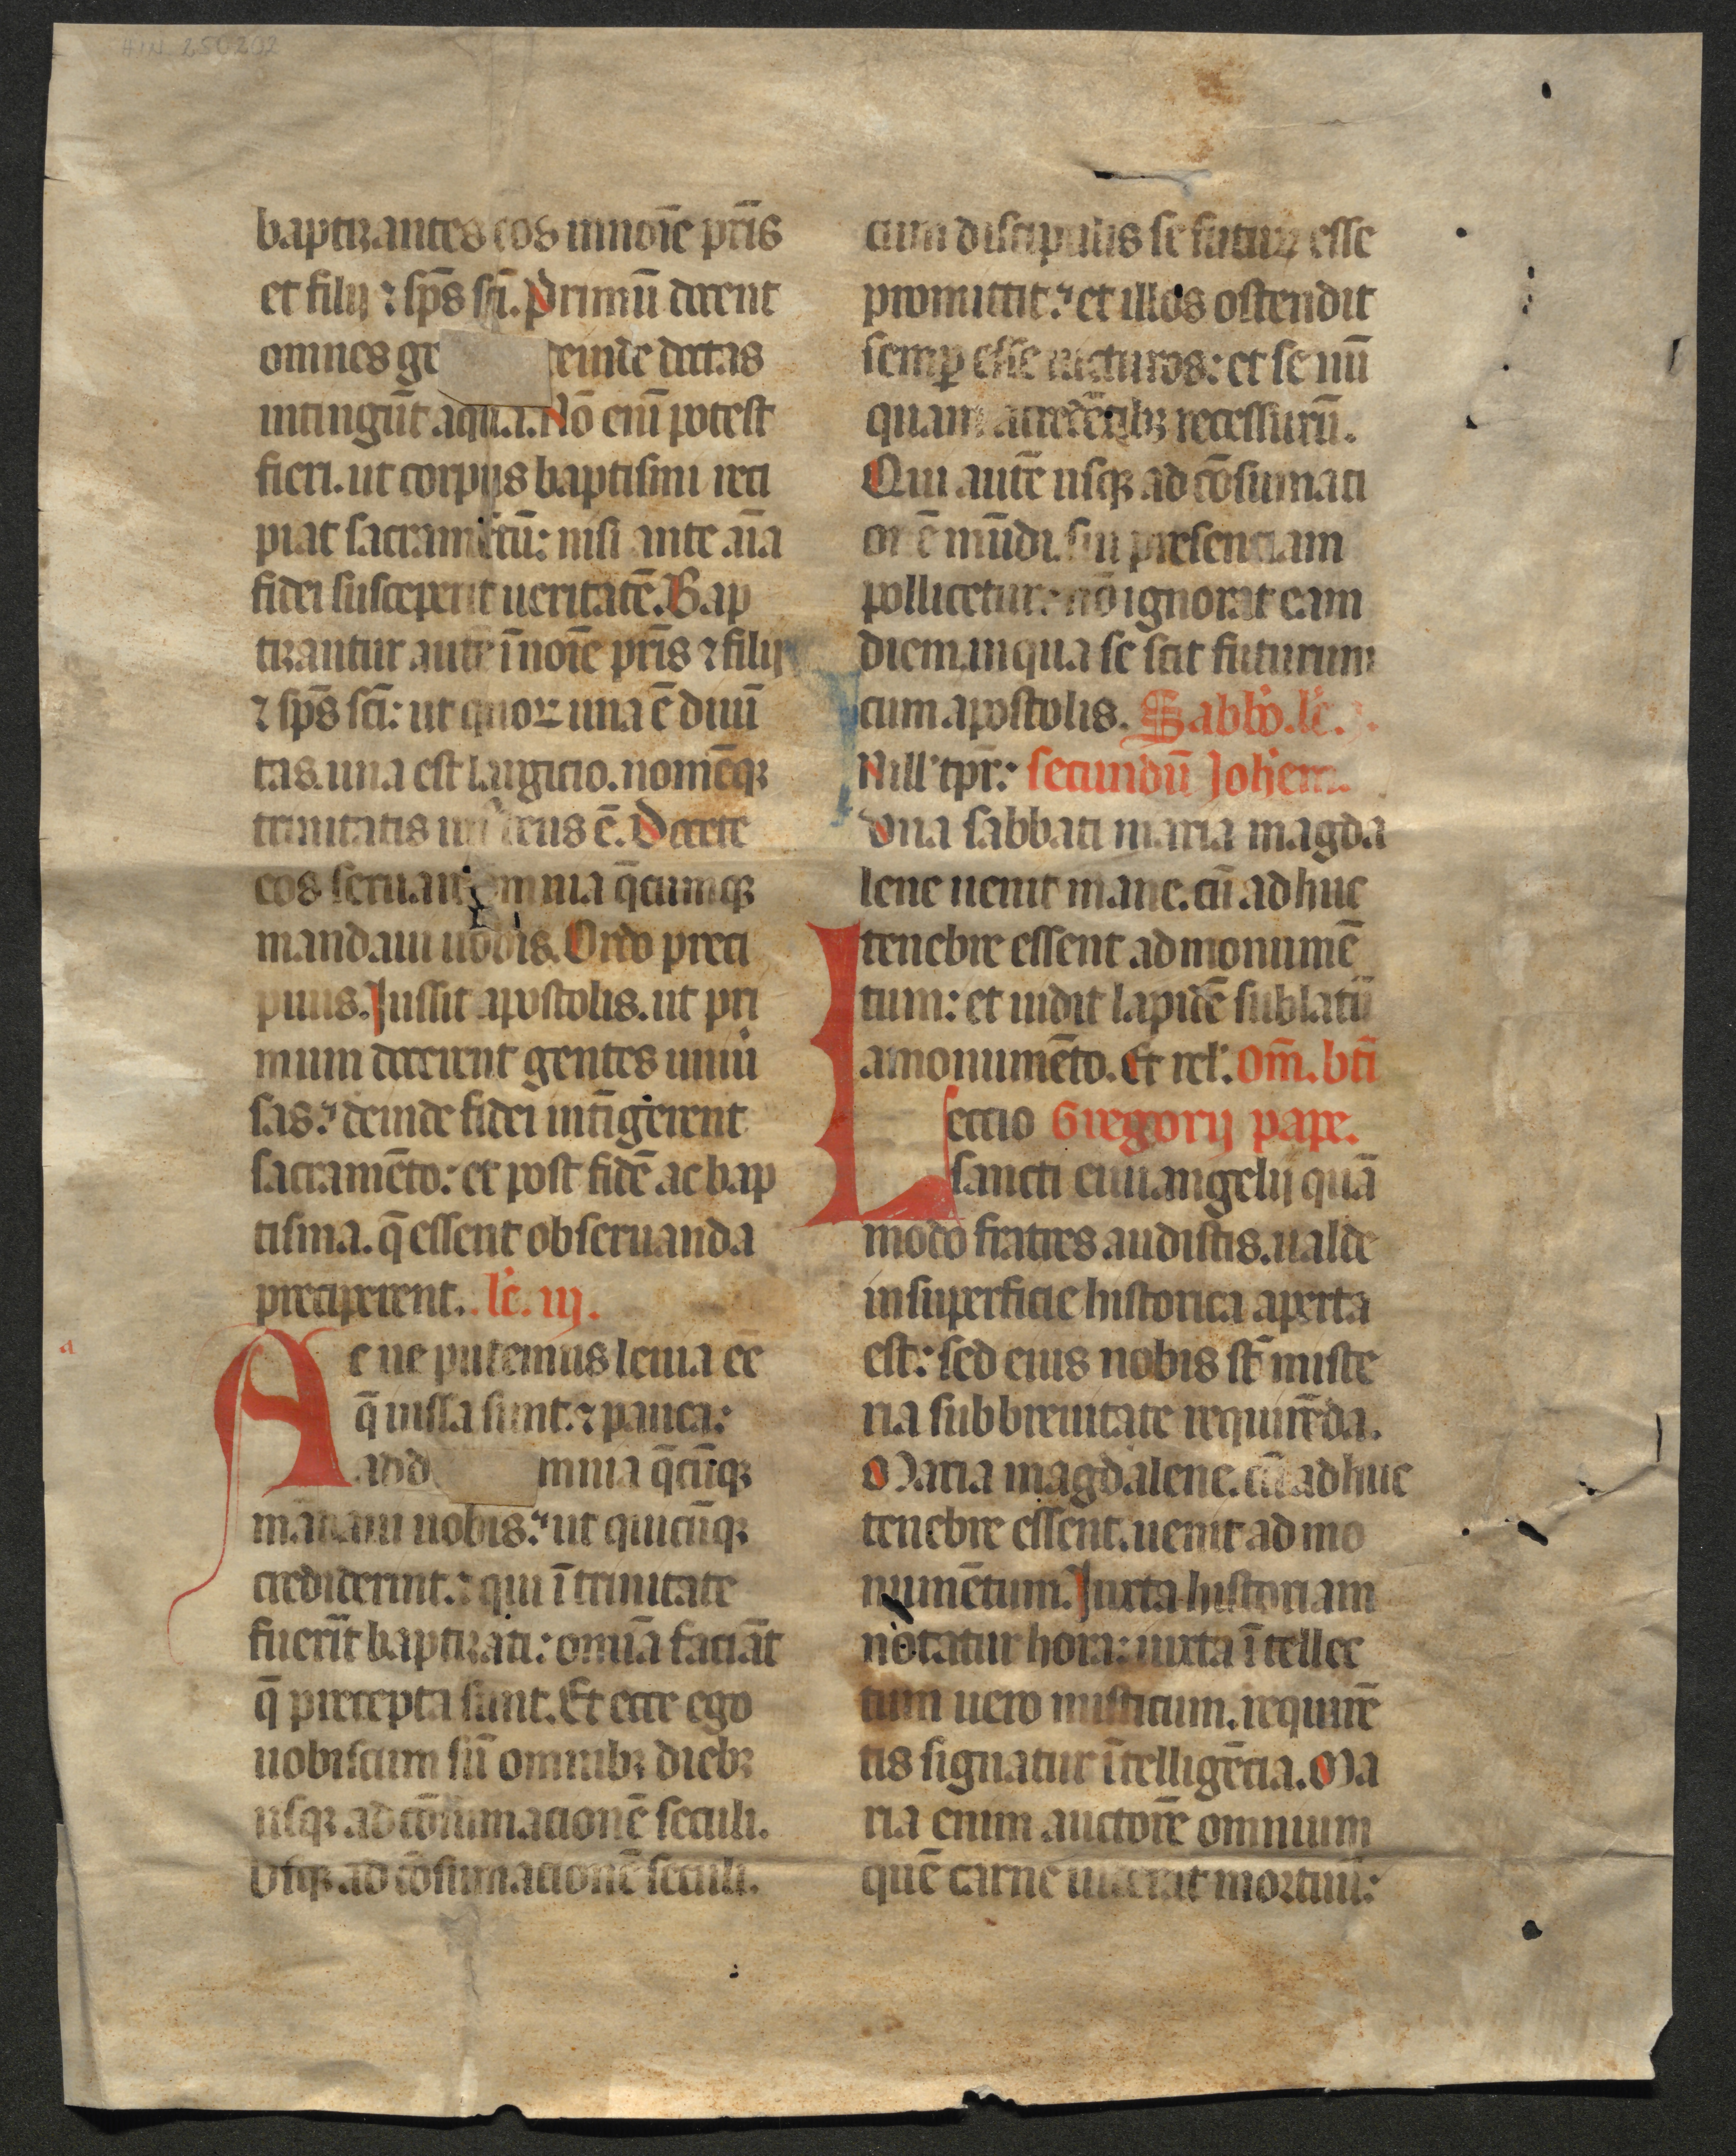 HIN 250202
baptizantes eos in noīe pr̄is
et filij ⁊ sp̄s sc̄i. Primū docent
omnes ge deinde doctas
intingūt aqua. Nō eni͞ potest
fieri. ut corpus baptismi reci
piat sacramētū: nisi ante aīa
fidei susceperit ueritatē. Bap
tizantur autē ī noīe pr̄is ⁊ filij
⁊ sp̄s sc̄i: ut quoꝝ una ē diuī
tas. una est largicio. nomēqꝫ
trinitatis un deus ē. Docete
eos seruare omnia q̄cumqꝫ
mandaui uobis. Ordo preci
puus. Jussit apostolis. ut pri
mum docerent gentes uniū
sas: deinde fidei intīgerent
sacramēto: et post fidē ac bap
tisma. q̄ essent obseruanda
preciperent. lc̄. iij.
a
Ac ne putemus leuia ēē
q̄ iussa sunt. ⁊ pauca:
add mnia q̄cūqꝫ
mandaui uobis: ut quicūqꝫ
crediderint. ⁊ qui ī trinitate
fuerīt baptizati: omīa faciāt
q̄ precepta sunt. Et ecce ego
uobiscum sū omnibꝫ diebꝫ
usqꝫ ad cōsumacionē seculi.
Usqꝫ ad cōsumacionē seculi.
cum discipulis se futuꝝ esse
promittit: et illos ostendit
semꝑ esse uicturos: et se nū
quam a credētibꝫ recessurū.
Qui autē usqꝫ ad cōsumaci
onē mūdi. sui presenciam
pollicetur: nō ignorat eam
diem. in qua se scit futurum
cum apostolis. Sabb̄o. lc̄.
N ill' tp̄r: secundū Joh̄em.
Vna sabbati maria magda
lene uenit mane. cū adhuc
tenebre essent ad monumē
tum: et uidit lapidē sublatū
a monumēto. Et rel'. Om̄. bt̄i
Leccio Gregorij pape.
sancti euuangelij quā
modo fratres audistis. ualde
in superficie historica aperta
est: sed eius nobis st̄ miste
ria sub breuitate requirēda.
Maria magdalene. cū adhuc
tenebre essent. uenit ad mo
numētum. Juxta historiam
notatur hora: iuxta ītellec
tum uero misticum. requirē
tis signatur ītelligēcia. Ma
ria enim auctorē omnium
quē carne uiderat mortuū: